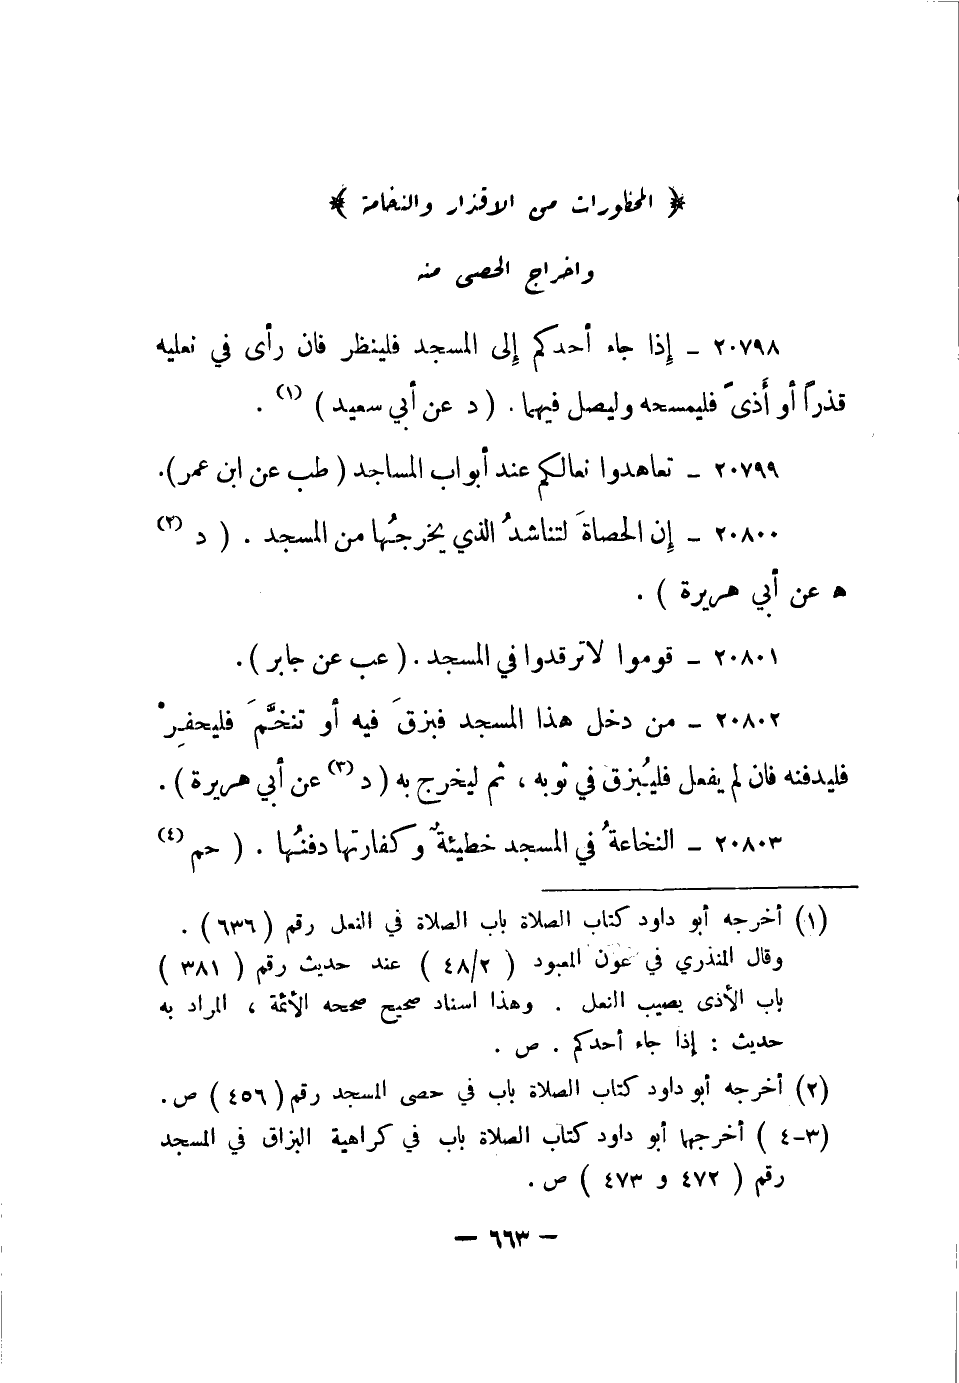 ﴿ المحظورات من الاقذار والنخامة ﴾
واخراج الحصى منه
٢٠٧٩٨ ـ إِذا جاء أحدكم إِلى المسجد فلينظر فان رأى في نعليه
قذراً أو أَذىً فليمسحه وليصل فيهما . ( د عن أبي سعيد ) (١) .
٢٠٧٩٩ ـ تعاهدوا نعالكم عند أبواب المساجد ( طب عن ابن عمر ).
٢٠٨٠٠ ـ إِن الحصاةَ لتناشدُ الذي يخرجُها من المسجد . ( د (٢)
ه عن أبي هريرة ) .
٢٠٨٠١ ـ قوموا لاترقدوا في المسجد . ( عب عن جابر ).
٢٠٨٠٢ ـ من دخل هذا المسجد فبزقَ فيه أو تنخَّمَ فليحفِرْ
فليدفنه فان لم يفعل فليُبزق في ثوبه ، ثم ليخرج به ( د (٣) عن أبي هريرة ) .
٢٠٨٠٣ ـ النخاعةُ في المسجد خطيئةٌ وكفارتها دفنُها . ( حم (٤)
(١) أخرجه أبو داود كتاب الصلاة باب الصلاة في النعل رقم ( ٦٣٦ ) .
وقال المنذري في عون المعبود ( ٤٨/٢ ) عند حديث رقم ( ٣٨١ )
باب الأذى يصيب النعل . وهذا اسناد صحيح صححه الأئمة ، المراد به
حديث : إذا جاء أحدكم . ص .
(٢) أخرجه أبو داود كتاب الصلاة باب في حصى المسجد رقم ( ٤٥٦ ) ص .
(٣-٤ ) أخرجها أبو داود كتاب الصلاة باب في كراهية البزاق في المسجد
رقم ( ٤٧٢ و ٤٧٣ ) ص .
— ٦٦٣ —